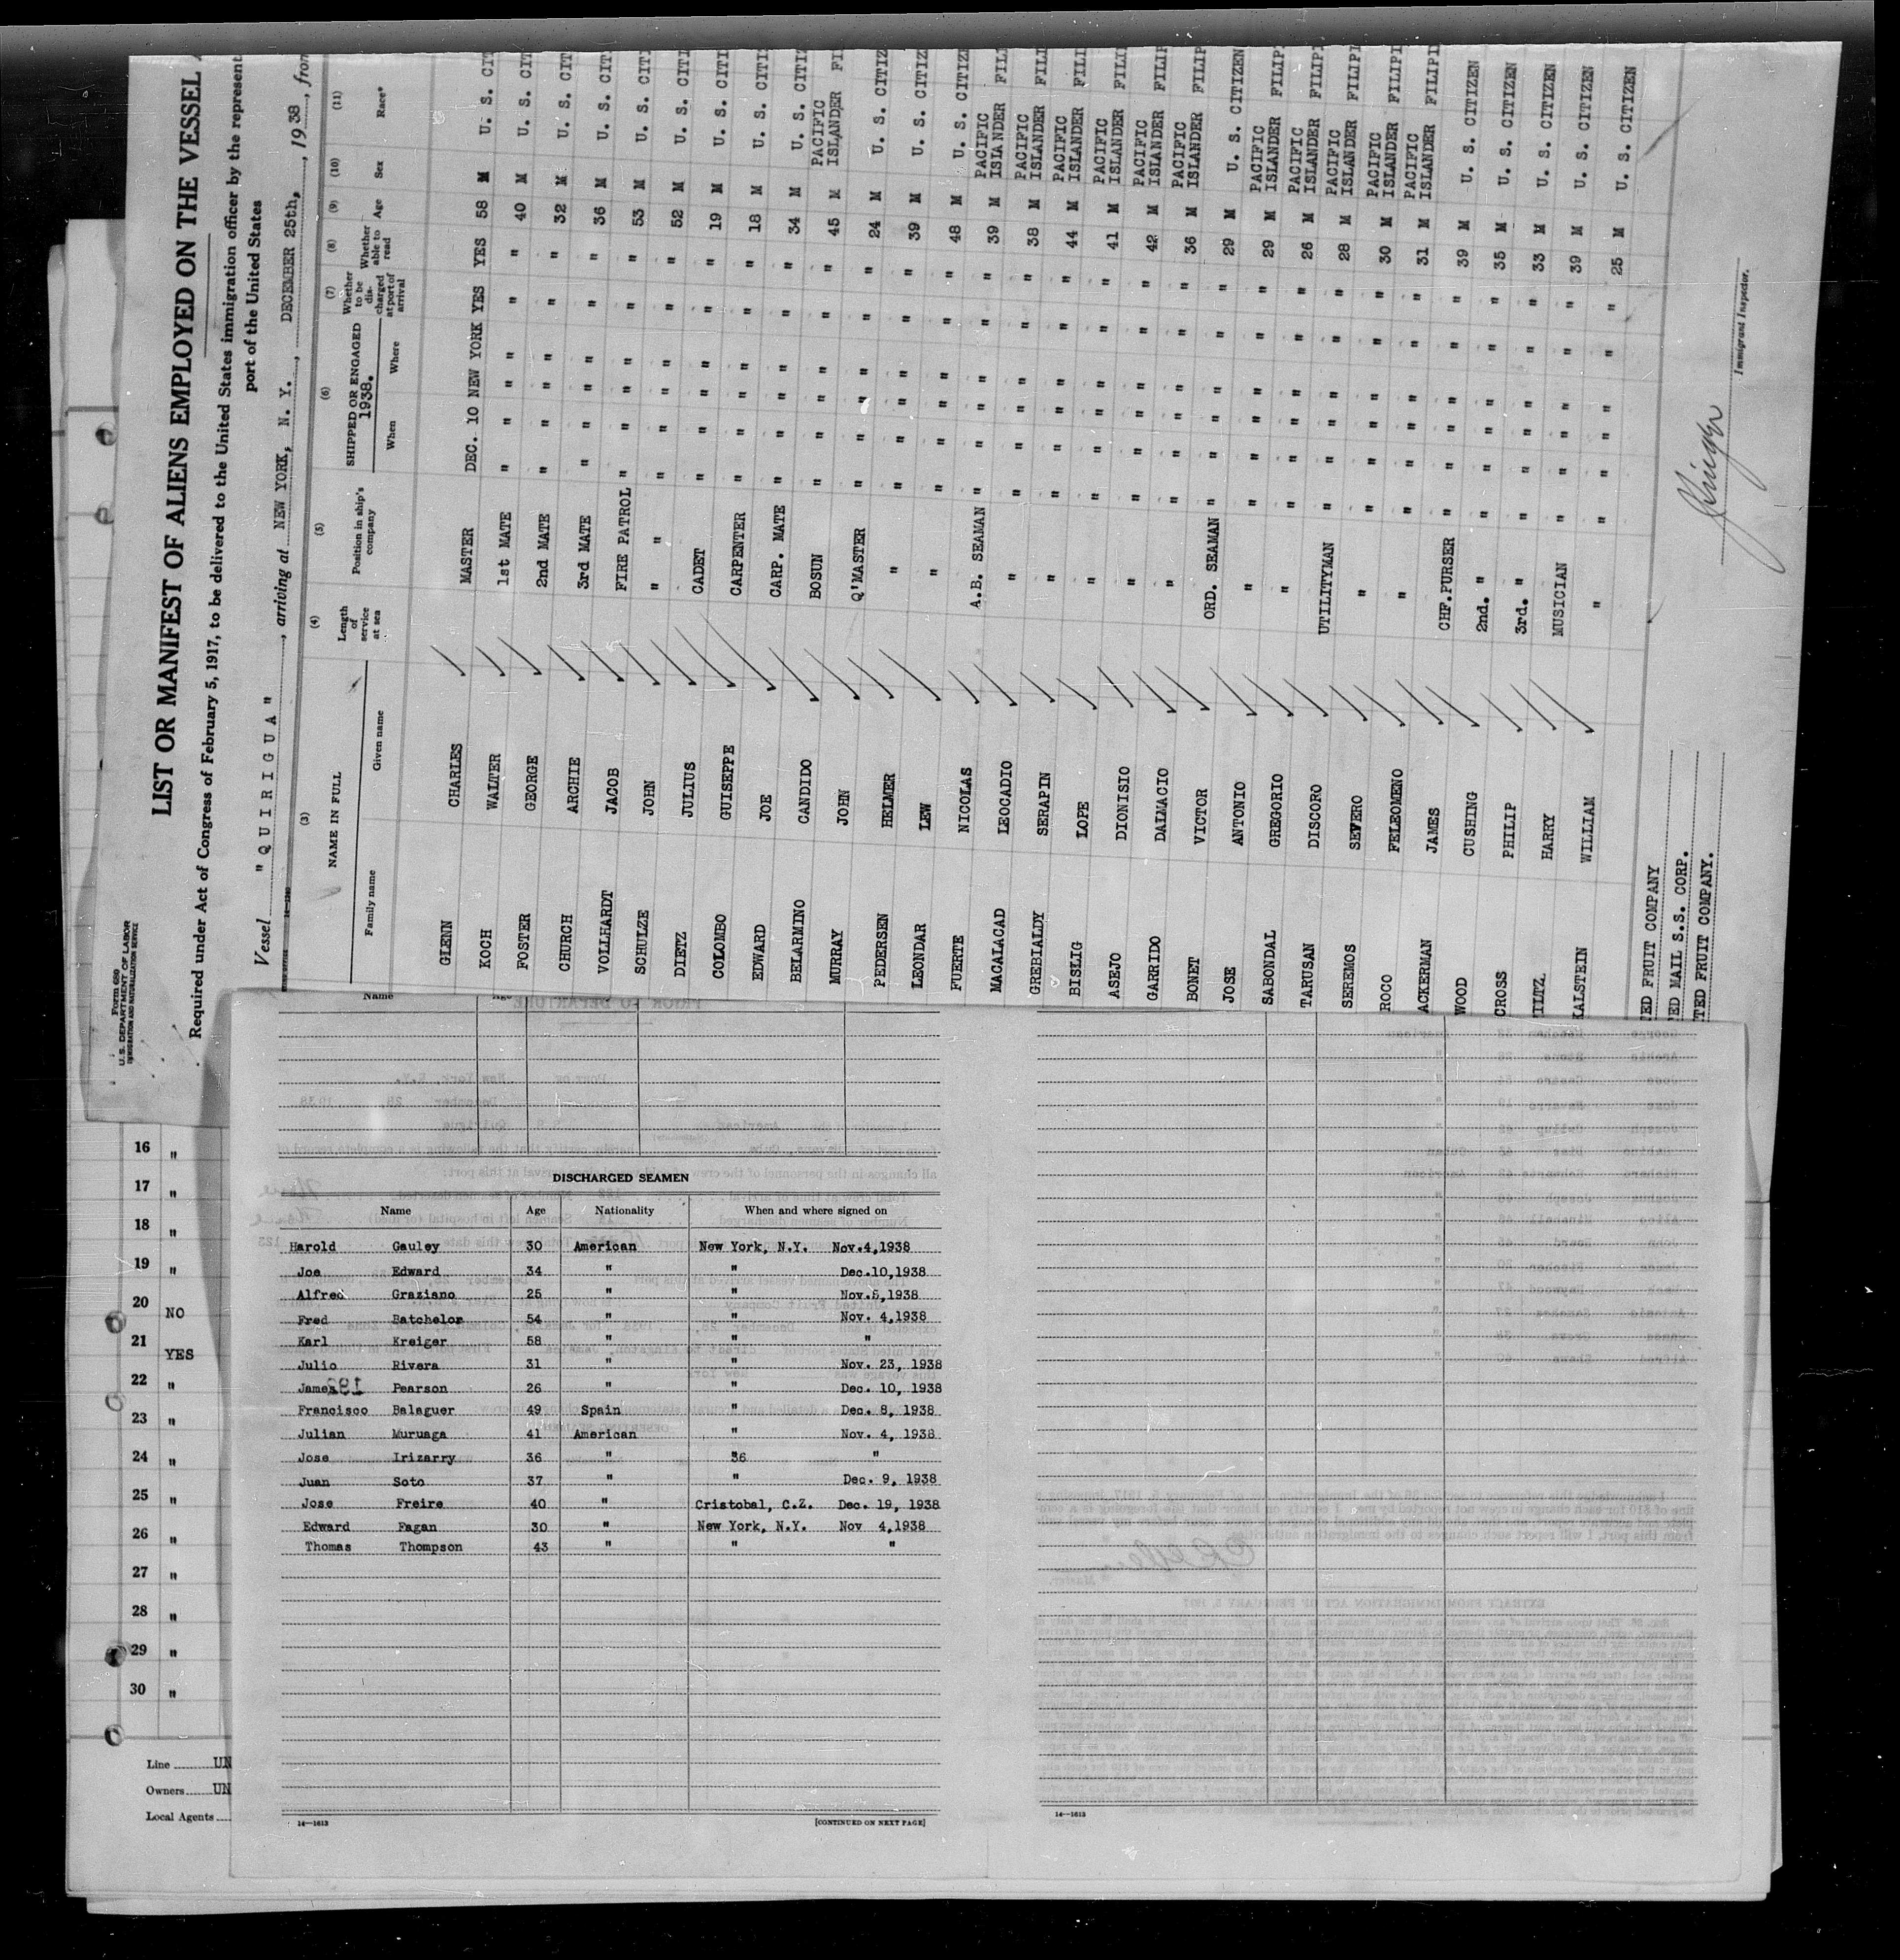 Form 680
U.S. DEPARTMENT OF LABOR
IMMIGRATION AND NATURALIZATION SERVICE
LIST OR MANIFEST OF ALIENS EMPLOYED ON THE VESSEL
Required under Act of Congress of February 5, 1917, to be delivered to the United States immigration officer by the represent
port of the United States
Vessel "QUIRIGUA", arriving at NEW YORK, N. Y., DECEMBER 25th, 1938, from
(3) (4) (5) (6) (7) (8) (9) (10) (11)
NAME IN FULL Length of service at sea Position in ship's company SHIPPED OR ENGAGED 1938. Whether to be discharged at port of arrival Whether able to read Age Sex Race*
Family name Given name When Where
GLENN CHARLES MASTER DEC. 10 NEW YORK YES YES 58 M U. S. CIT
KOCH WALTER 1st MATE " " " " " " 40 M U. S. CIT
FOSTER GEORGE 2nd MATE " " " " " " 32 M U. S. CIT
CHURCH ARCHIE 3rd MATE " " " " " " 36 M U. S. CIT
VOLLHARDT JACOB FIRE PATROL " " " " " " 53 M U. S. CITI
SCHULZE JOHN " " " " " " " 52 M U. S. CITI
DIETZ JULIUS CADET " " " " " " 19 M U. S. CITI
COLOMBO GUISEPPE CARPENTER " " " " " " 18 M U. S. CITI
EDWARD JOE CARP. MATE " " " " " " 34 M U. S. CITIZ
BELARMINO CANDIDO BOSUN " " " " " " 45 M PACIFIC ISLANDER FI
MURRAY JOHN Q'MASTER " " " " " " 24 M U. S. CITIZ
PEDERSEN HELMER " " " " " " " 39 M U. S. CITIZ
LEONDAR LEW " " " " " " " 48 M U. S. CITIZE
FUERTE NICOLAS A.B. SEAMAN " " " " " " 39 M PACIFIC ISLANDER FIL
MACALACAD LEOCADIO " " " " " " " 38 M PACIFIC ISLANDER FILI
GREBIALDY SERAPIN " " " " " " " 44 M PACIFIC ISLANDER FILI
BISLIG LOPE " " " " " " " 41 M PACIFIC ISLANDER FILII
ASEJO DIONISIO " " " " " " " 42 M PACIFIC ISLANDER FILIP
GARRIDO DALMACIO " " " " " " " 36 M PACIFIC ISLANDER FILIP
BONET VICTOR ORD. SEAMAN " " " " " " 29 M U. S. CITIZEN
JOSE ANTONIO " " " " " " " 29 M PACIFIC ISLANDER FILIPI
SABONDAL GREGORIO " " " " " " " 26 M PACIFIC ISLANDER FILIPI
TARUSAN DISCORO UTILITYMAN " " " " " " 28 M PACIFIC ISLANDER FILIPI
SEREMOS SEVERO " " " " " " " 30 M PACIFIC ISLANDER FILIPI
ROCO FELEOMENO " " " " " " " 31 M PACIFIC ISLANDER FILIPI
ACKERMAN JAMES CHF.PURSER " " " " " " 39 M U. S. CITIZEN
WOOD CUSHING 2nd. " " " " " " " 35 M U. S. CITIZEN
CROSS PHILIP 3rd. " " " " " " " 33 M U. S. CITIZEN
ILTZ HARRY MUSICIAN " " " " " " 39 M U. S. CITIZEN
KALSTEIN WILLIAM " " " " " " " 25 M U. S. CITIZEN
TED FRUIT COMPANY
TED MAIL S.S. CORP.
TED FRUIT COMPANY.
Immigrant Inspector.
16 "
17 "
18 "
19 "
20 NO
21 YES
22 "
23 "
24 "
25 "
26 "
27 "
28 "
29 "
30 "
Line UN
Owners UN
Local Agents
Name Age
DISCHARGED SEAMEN
Name Age Nationality When and where signed on
Harold Gauley 30 American New York, N.Y. Nov.4,1938
Joe Edward 34 " " Dec.10,1938
Alfred Graziano 25 " " Nov.5,1938
Fred Batchelor 54 " " Nov. 4,1938
Karl Kreiger 58 " " "
Julio Rivera 31 " " Nov. 23, 1938
James Pearson 26 " " Dec. 10, 1938
Francisco Balaguer 49 Spain " Dec. 8, 1938
Julian Muruaga 41 American " Nov. 4, 1938
Jose Irizarry 36 " 36 "
Juan Soto 37 " " Dec. 9, 1938
Jose Freire 40 " Cristobal, C.Z. Dec. 19, 1938
Edward Fagan 30 " New York, N.Y. Nov 4,1938
Thomas Thompson 43 " " "
14—1613 [CONTINUED ON NEXT PAGE]
14—1613